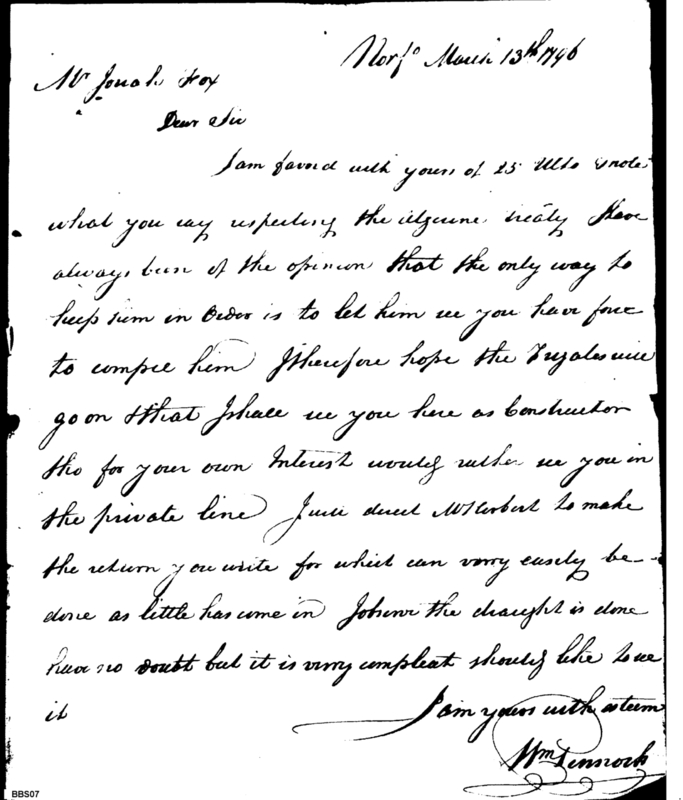 Norfo March 13th 1796
Mr Josiah Fox
Dear Sir
I am favord with yours of 25 Ulto & note
what you say respecting the algerine treaty I have
always been of the opinion that the only way to
keep him in Order is to let him see you have force
to compel him I therefore hope the Frigates will
go on & that I shall see you here as Constructor
tho for your own Interest would rather see you in
the private line I will direct Mr Herbert to make
the return you write for which can verry easily be
done as little has come in I observe the draught is done
have no doubt but it is verry compleat should like to see
it
I am yours with esteem
Wm Pennock
BBS07